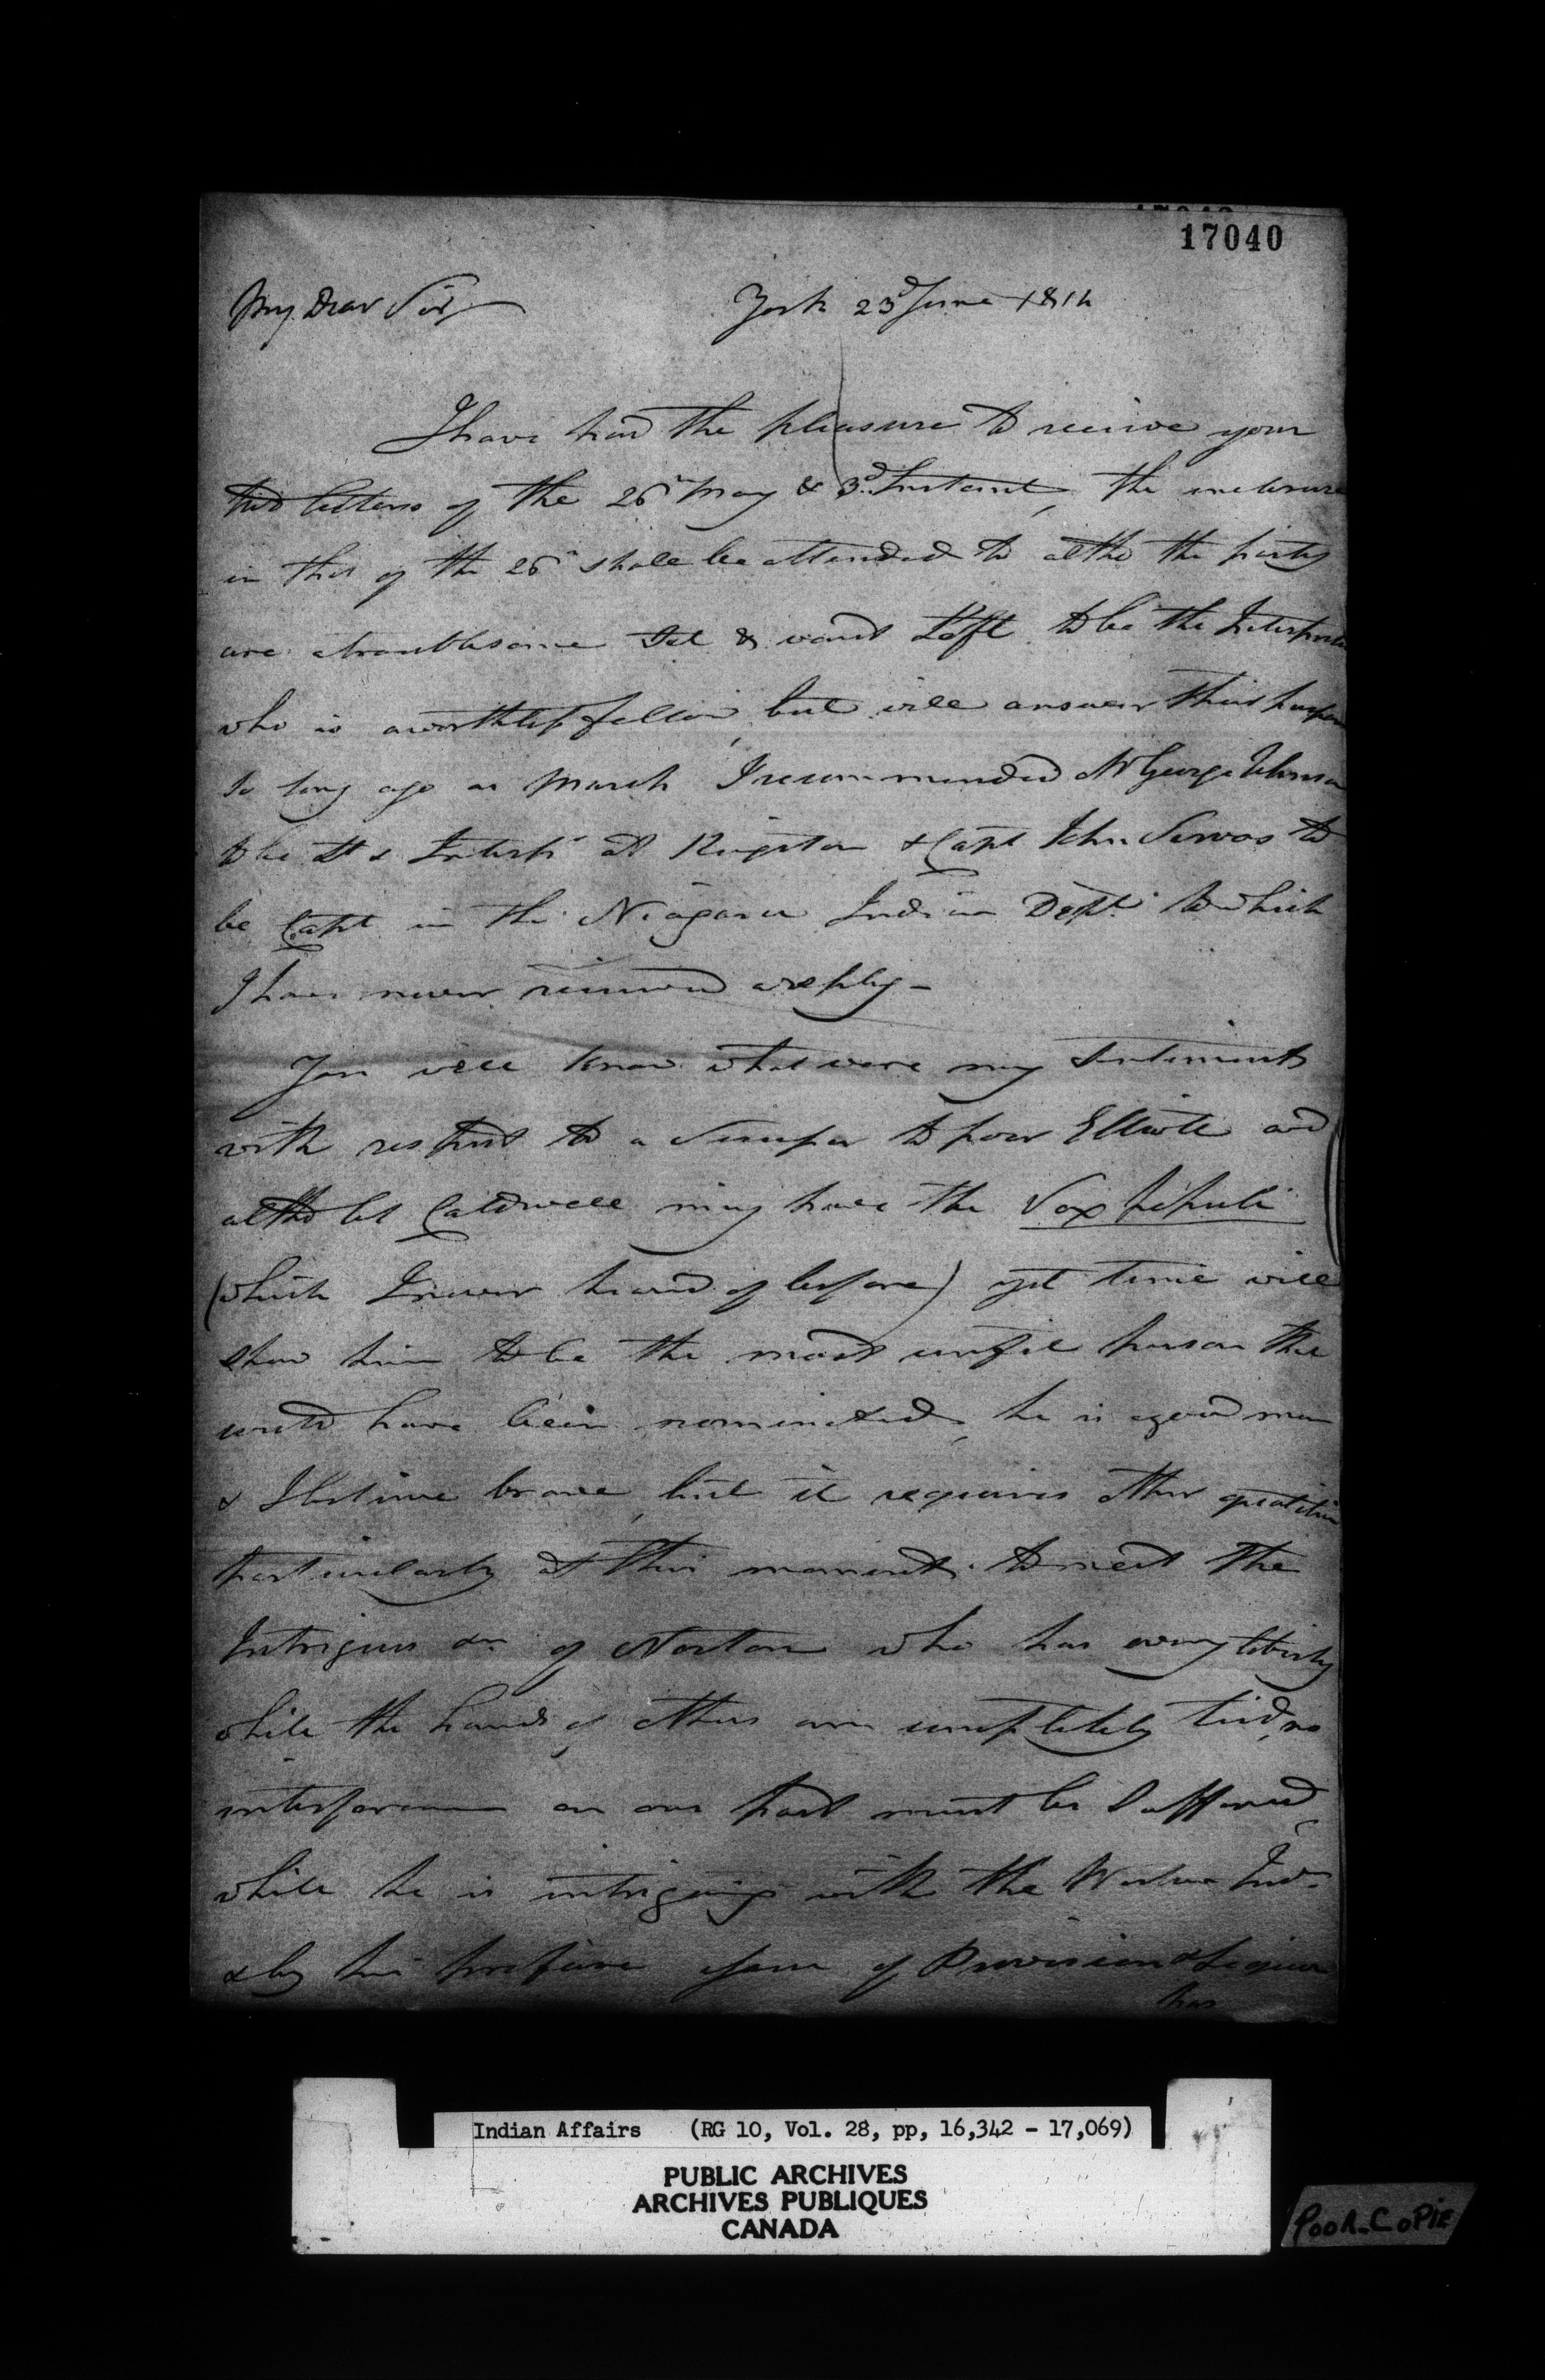 17040
My Dear Sir, York 23d June 1814
I have had the pleasure to receive your
two letters of the 26th May & 3d Instant, the inclosure
in that of the 26th shall be attended to altho the party
are a troublesome Set & want Loft to be the Interpreter
who is a worthless fellow, but will answer their purpose
So long ago as March I recommended Mr George Johnson
to be Lt & Interpr at Kingston & Capt John Servos to
be Capt in the Niagara Indian Dept. to which
I have never received a reply —
You well know what were my Sentiments
with respect to a Successor to poor Elliott and
altho Col Caldwell may have the Vox populi
(which I never heard of before) yet time will
shew him to be the most unfit person that
could have been nominated, he is a good man
& I believe brave, but it requires other qualities
particularly at this moment to meet the
Intrigues &c. of Norton who has every liberty
while the hands of others are completely tied, no
interference on our part must be Suffered,
while he is intriguing with the Western Inds.
& by his profuse issue of Provision & Liquor
has
Indian Affairs (RG 10, Vol. 28, pp, 16,342 - 17,069)
PUBLIC ARCHIVES
ARCHIVES PUBLIQUES
CANADA
POOR COPIE